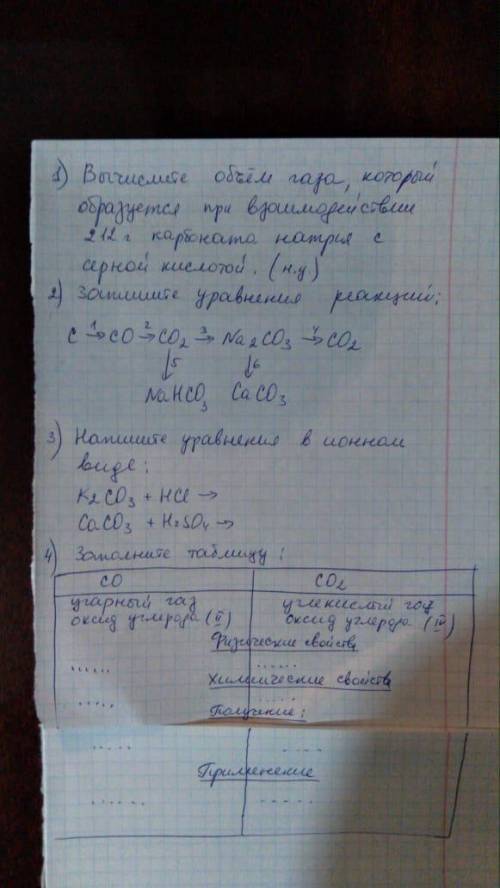 1) Вычислите объём газа, который
образуется при взаимодействии
212 г карбоната натрия с
серной кислотой. (н.у)
2) Запишите уравнения реакций:
C →¹ CO →² CO₂ →³ Na₂CO₃ →⁴ CO₂
↓5 ↓6
NaHCO₃ CaCO₃
3) Напишите уравнения в ионном
виде:
K₂CO₃ + HCl →
CaCO₃ + H₂SO₄ →
4) Заполните таблицу:
CO CO₂
угарный газ углекислый газ
оксид углерода (II) оксид углерода (IV)
Физические свойства
...... ......
Химические свойства
...... ......
Получение:
..... .....
Применение
...... ......